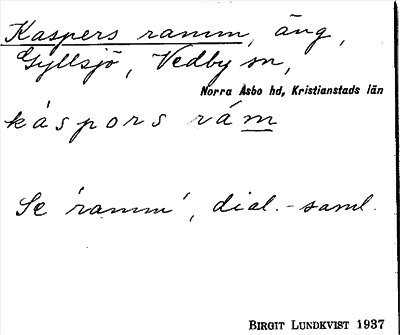 Kaspers ramm, äng,
Gyllsjö, Vedby sn,
Norra Åsbo hd, Kristianstads län
káspors rám
Se 'ramm', dial.-saml.
BIRGIT LUNDKVIST 1937